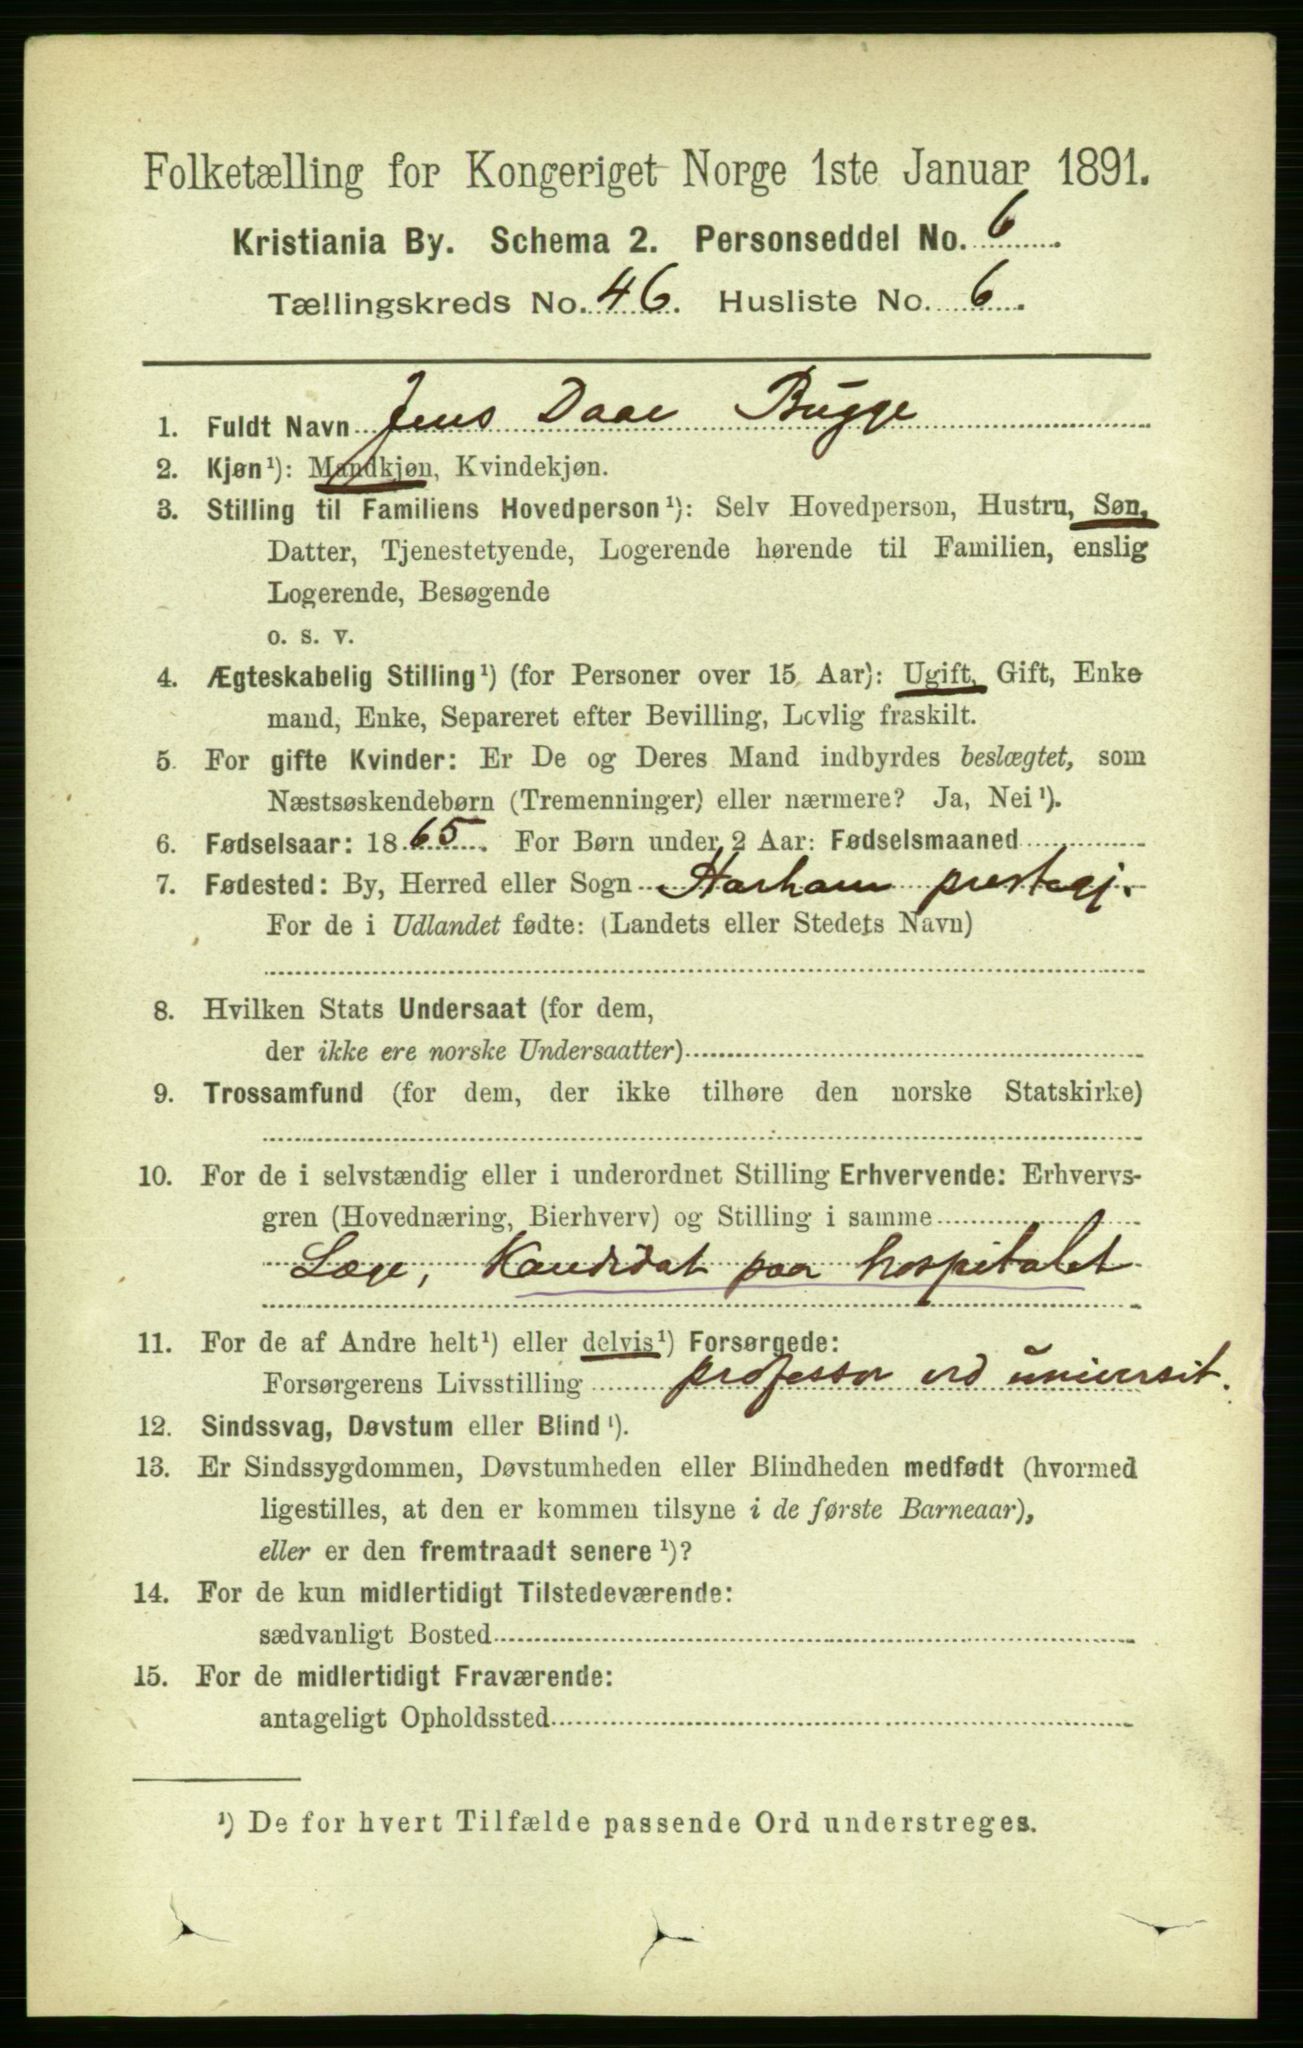 Folketælling for Kongeriget Norge 1ste Januar 1891.
Kristiania By. Schema 2. Personseddel No. 6
Tællingskreds No. 46. Husliste No. 6.
1. Fuldt Navn Jens Daae Bugge
2. Kjøn¹): Mandkjøn, Kvindekjøn.
3. Stilling til Familiens Hovedperson¹): Selv Hovedperson, Hustru, Søn,
Datter, Tjenestetyende, Logerende hørende til Familien, enslig
Logerende, Besøgende
o. s. v.
4. Ægteskabelig Stilling¹) (for Personer over 15 Aar): Ugift, Gift, Enke
mand, Enke, Separeret efter Bevilling, Lovlig fraskilt.
5. For gifte Kvinder: Er De og Deres Mand indbyrdes beslægtet, som
Næstsøskendebørn (Tremenninger) eller nærmere? Ja, Nei¹).
6. Fødselsaar: 1865. For Børn under 2 Aar: Fødselsmaaned
7. Fødested: By, Herred eller Sogn Harham prestegj.
For de i Udlandet fødte: (Landets eller Stedets Navn)
8. Hvilken Stats Undersaat (for dem,
der ikke ere norske Undersaatter)
9. Trossamfund (for dem, der ikke tilhøre den norske Statskirke)
10. For de i selvstændig eller i underordnet Stilling Erhvervende: Erhvervs-
gren (Hovednæring, Bierhverv) og Stilling i samme
Læge, Kandidat paa hospitalet
11. For de af Andre helt¹) eller delvis¹) Forsørgede:
Forsørgerens Livsstilling professor ved universit.
12. Sindssvag, Døvstum eller Blind¹).
13. Er Sindssygdommen, Døvstumheden eller Blindheden medfødt (hvormed
ligestilles, at den er kommen tilsyne i de første Barneaar),
eller er den fremtraadt senere¹)?
14. For de kun midlertidigt Tilstedeværende:
sædvanligt Bosted
15. For de midlertidigt Fraværende:
antageligt Opholdssted
¹) De for hvert Tilfælde passende Ord understreges.